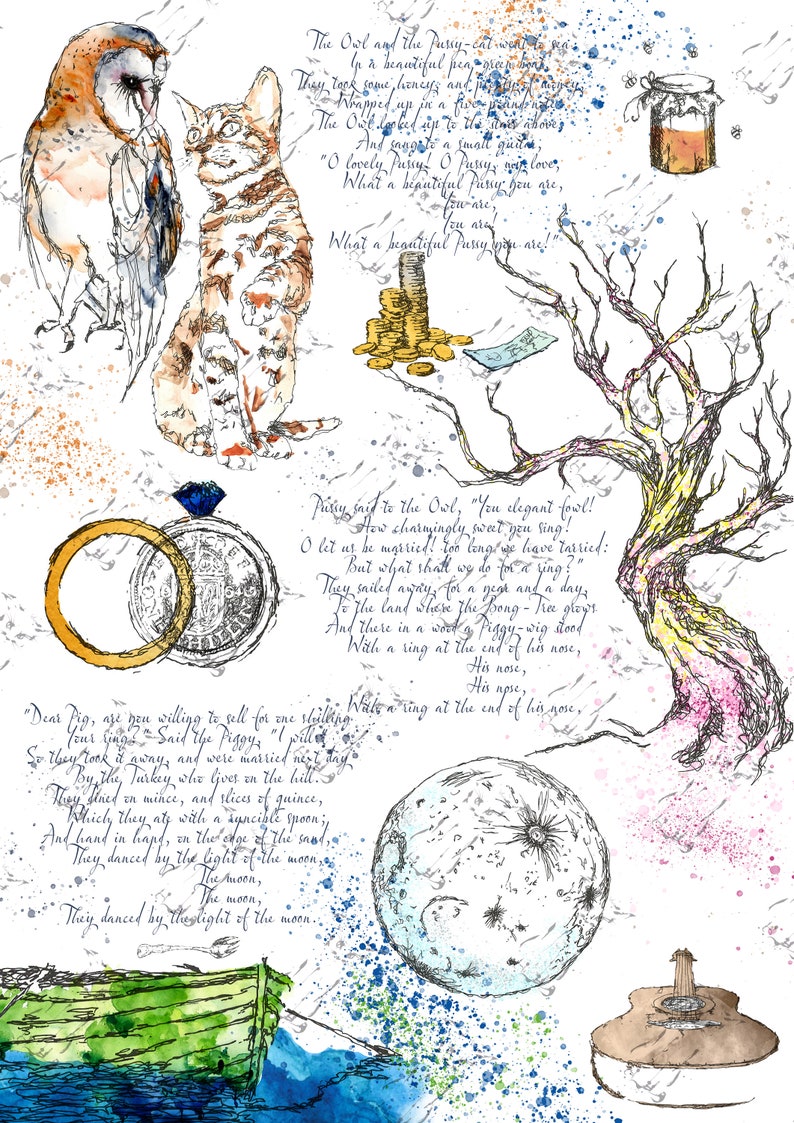 The Owl and the Pussy-cat went to sea
In a beautiful pea-green boat,
They took some honey, and plenty of money,
Wrapped up in a five-pound note.
The Owl looked up to the stars above,
And sang to a small guitar,
"O lovely Pussy! O Pussy, my love,
What a beautiful Pussy you are,
You are,
You are!
What a beautiful Pussy you are!"
Pussy said to the Owl, "You elegant fowl!
How charmingly sweet you sing!
O let us be married! too long we have tarried:
But what shall we do for a ring?"
They sailed away, for a year and a day,
To the land where the Bong-Tree grows
And there in a wood a Piggy-wig stood
With a ring at the end of his nose,
His nose,
His nose,
With a ring at the end of his nose.
"Dear Pig, are you willing to sell for one shilling
Your ring?" Said the Piggy, "I will."
So they took it away, and were married next day
By the Turkey who lives on the hill.
They dined on mince, and slices of quince,
Which they ate with a runcible spoon;
And hand in hand, on the edge of the sand,
They danced by the light of the moon,
The moon,
The moon,
They danced by the light of the moon.